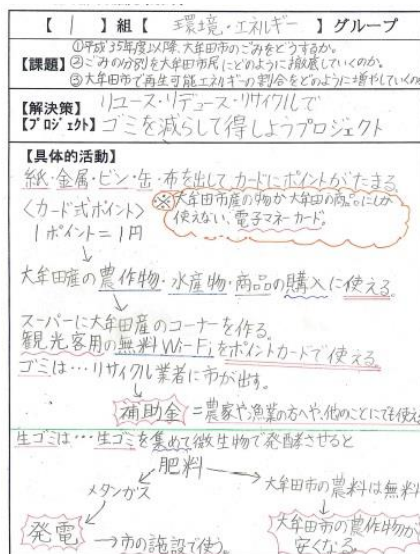 【 1 】組【 環境・エネルギー 】グループ
【課題】①平成35年度以降、大牟田市のごみをどうするか。
②ごみの分別を大牟田市民にどのように徹底していくのか。
③大牟田市で再生可能エネルギーの割合をどのように増やしていくの
【解決策】リユース・リデュース・リサイクルで
【プロジェクト】ゴミを減らして得しようプロジェクト
【具体的活動】
紙・金属・ビン・缶・布を出してカードにポイントがたまる。
〈カード式ポイント〉
1ポイント=1円
※大牟田市産の物か大牟田の商品にしか
使えない、電子マネーカード。
大牟田産の農作物・水産物・商品の購入に使える。
スーパーに大牟田産のコーナーを作る。
観光客用の無料Wi-Fiをポイントカードで使える。
ゴミは…リサイクル業者に市が出す。
補助金=農家や漁業の方へや、他のことにでも使え
生ゴミは…生ゴミを集めて微生物で発酵させると
肥料
メタンガス
大牟田市の農料は無料
発電
→市の施設で使う。
大牟田市の農作物が
安くなる。